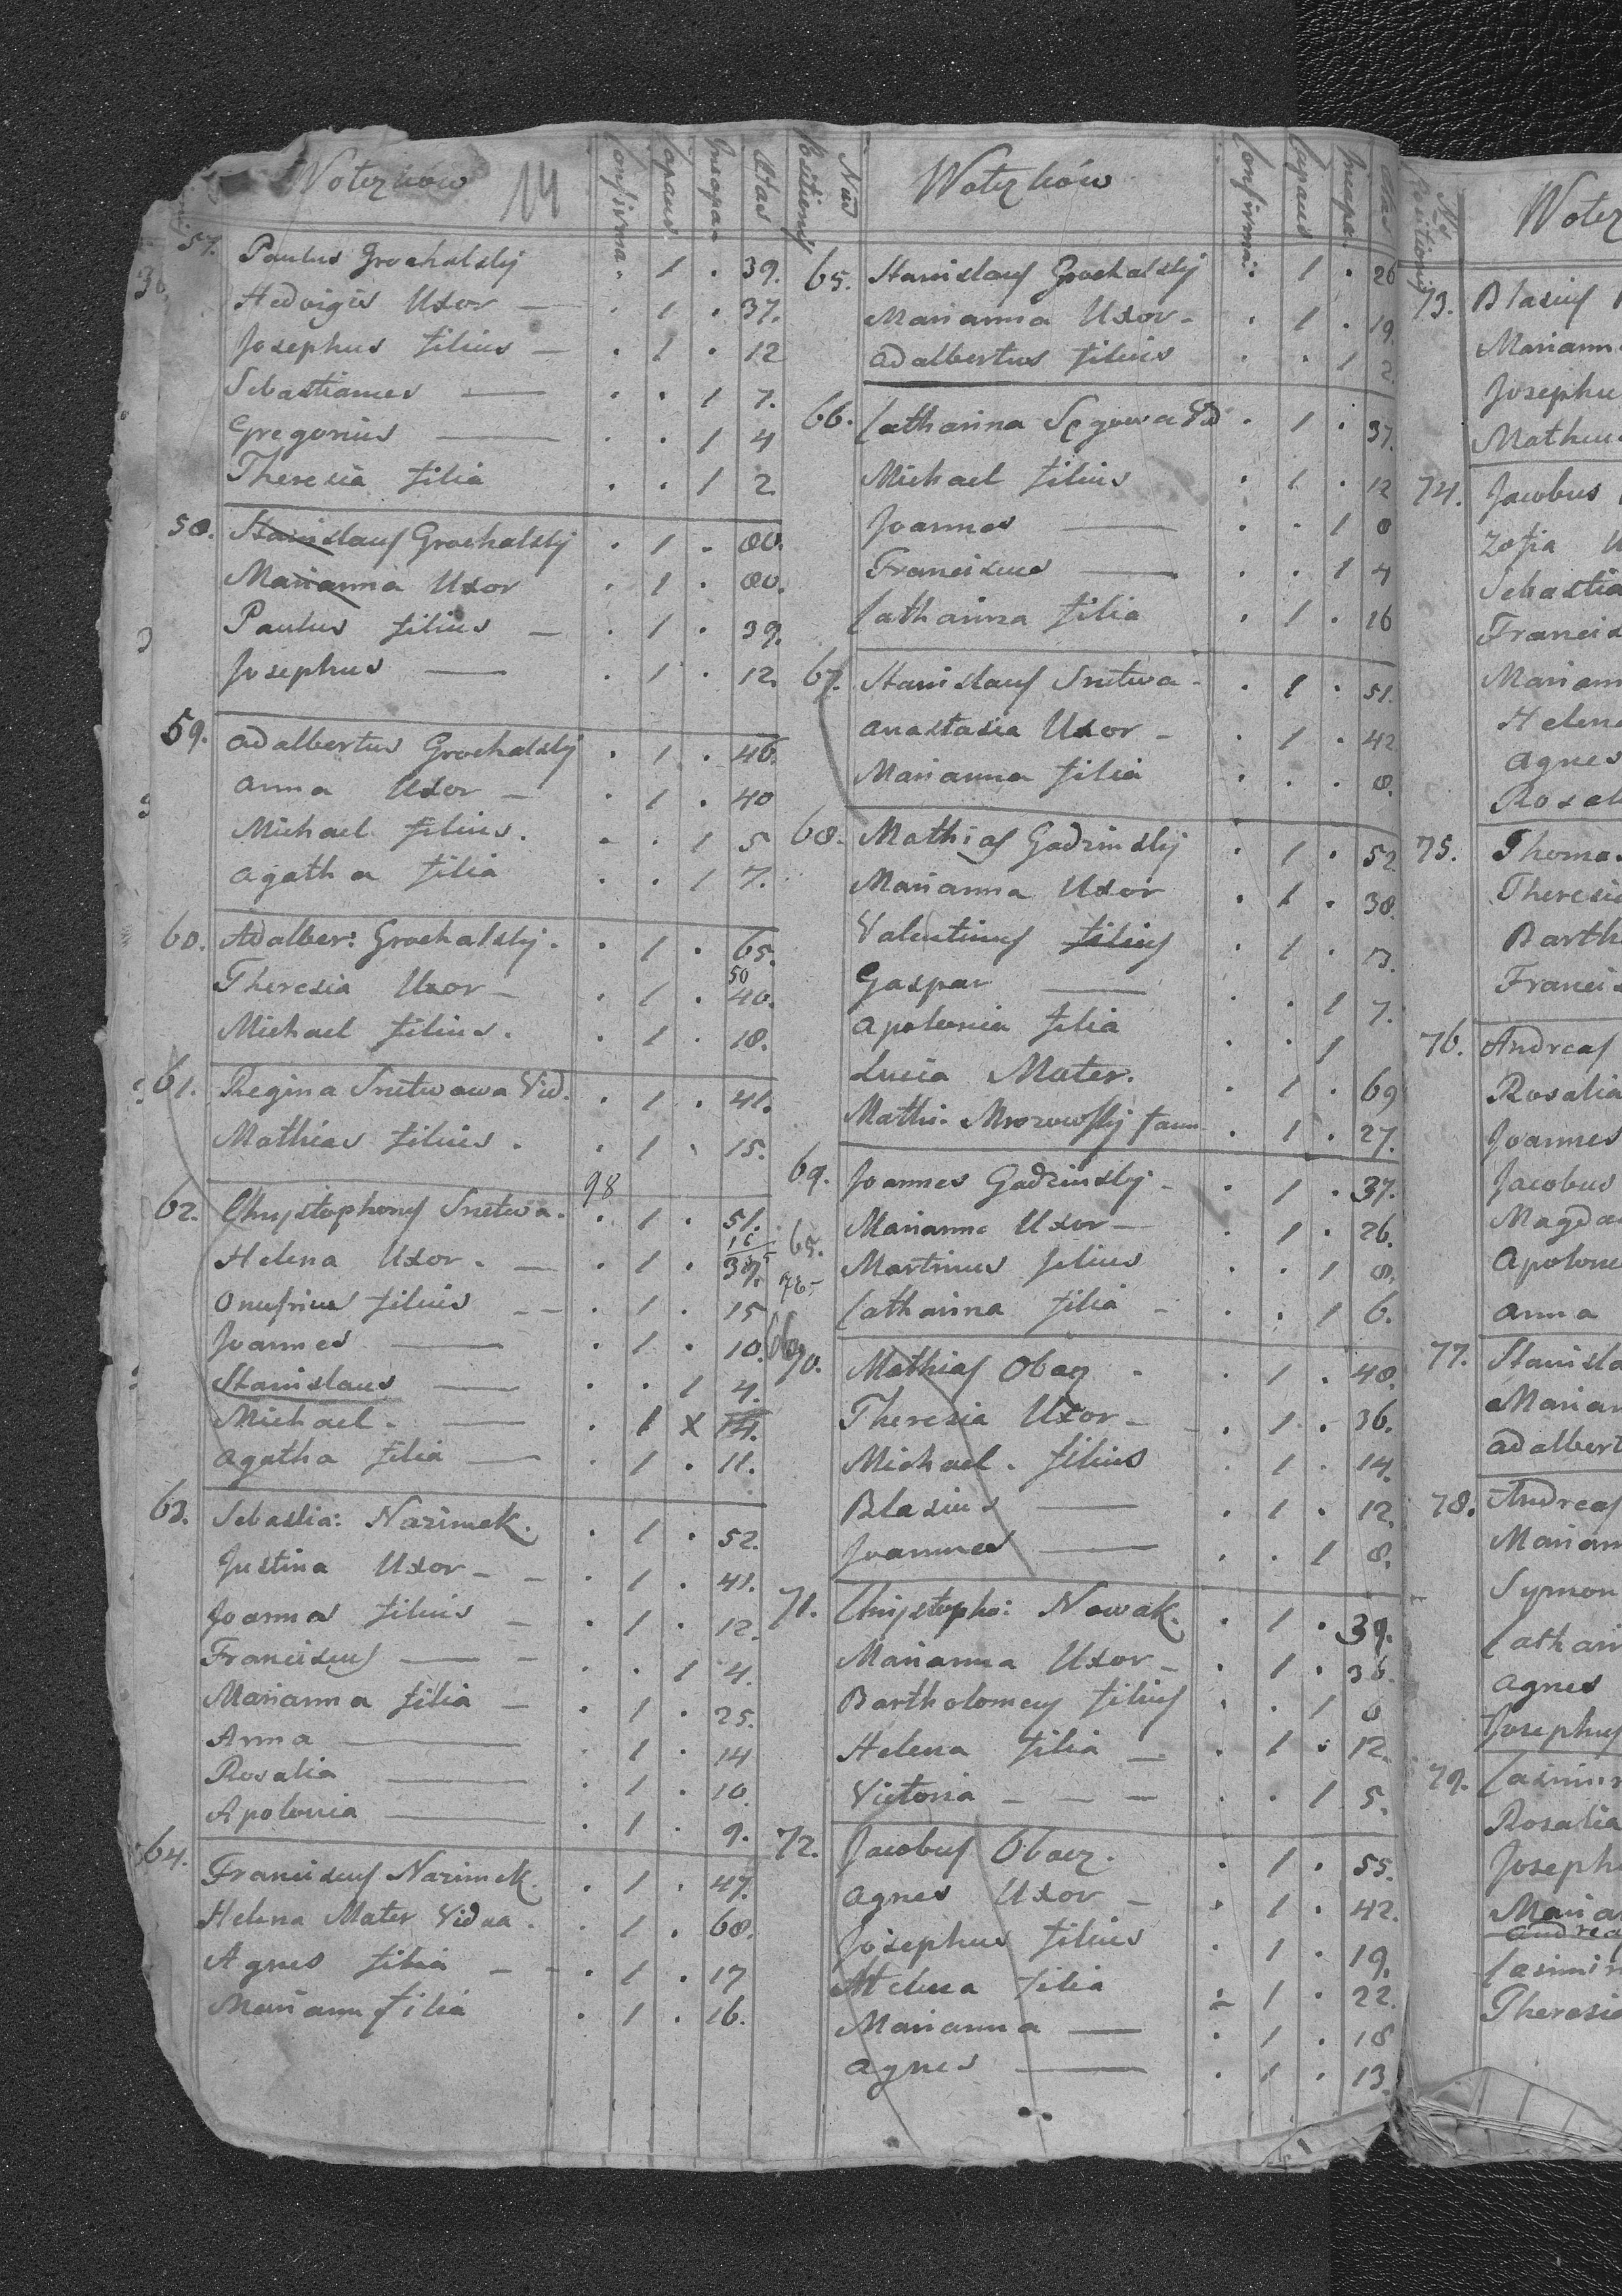 Wotzków 14 Confirma. Capaus. Incapa. Ætas
57. Paulus Grochalskij . 1 . 39.
Hedvigis Uxor — . 1 . 37.
Josephus filius — . 1 . 12
Sebastianus — . . 1 7.
Gregorius — . . 1 4
Theresia filia . . 1 2
58. Stanislaus Grochalskij . 1 . 80.
Marianna Uxor . 1 . 80.
Paulus filius — . 1 . 39.
Josephus — . 1 . 12.
59. Adalbertus Grochalskij . 1 . 46.
Anna Uxor — . 1 . 40
Michael filius . . . 1 5
Agatha filia . . 1 7.
60. Adalber: Grochalskij . . 1 . 65.
Theresia Uxor — . 1 . 50 40.
Michael filius . . 1 . 18.
61. Regina Snitwawa Vid. . 1 . 41.
Mathias filius . . 1 . 15.
98
62. Chrystophorus Snitwa . . 1 . 51.
Helena Uxor . — . 1 . 39.
Onufrius filius — — . 1 . 15
Joannes — . 1 . 10.
Stanislaus — . . 1 4.
Michael . — . 1 x 14.
Agatha filia — . 1 . 11.
63. Sebastia: Nazimek . . 1 . 52.
Justina Uxor — — . 1 . 41.
Joannes filius — . 1 . 12.
Franciscus — — . . 1 4.
Marianna filia — . 1 . 25.
Anna — . 1 . 14
Rosalia — . 1 . 10
Apolonia — . 1 . 9.
64. Franciscus Nazimek . . 1 . 47.
Helena Mater Vidua . . 1 . 68.
Agnes filia — — . 1 . 17
Mariann filia . 1 . 16.
Nrus Positionis Wotzków Confirma: Capaus Incapa. Ætas
65. Stanislaus Grochalskij . 1 . 26
Marianna Uxor — . 1 . 19.
Adalbertus filius . . 1 2.
66. Catharina Sęgowa Vid . 1 . 37.
Michael filius . 1 . 12
Joannes — . . 1 8
Franciscus — . . 1 4
Catharina filia . 1 . 16
67. Stanislaus Snitwa — . 1 . 51.
Anastasia Uxor — . 1 . 42
Marianna filia . . . 8.
68. Mathias Gadzinskij . 1 . 52
Marianna Uxor . 1 . 38.
Valentinus filius . 1 . 13.
Gaspar — . . 1 7.
Apolonia filia . . 1
Lucia Mater. . 1 . 69
Mathi: Mrozowskij fam . 1 . 27.
69. Joannes Gadzinskij — . 1 . 37.
65. Marianna Uxor — . 1 . 26.
Martinus filius . . 1 8.
Catharina filia — . . 1 6.
66. 70. Mathias Obaz — . 1 . 48.
Theresia Uxor — . 1 . 36.
Michael . filius . 1 . 14.
Blasius — . 1 . 12.
Joannes — . . 1 8.
71. Chrystopho: Nowak. . 1 . 39.
Marianna Uxor — . 1 . 36.
Bartholomeus filius . . 1 8
Helena filia — . 1 . 12.
Victoria — — — . . 1 5.
72. Jacobus Obacz. . 1 . 55.
Agnes Uxor — . 1 . 42.
Josephus filius . 1 . 19.
Helena filia . 1 . 22.
Marianna — . 1 . 18
Agnes — . 1 . 13.
Nrs Positionis Wotz
73. Blasius
Mariann
Josephu
Mathu
74. Jacobus
Zofia U
Sebastia
Francis
Mariann
Helena
Agnes
Rosal
75. Thomas
Theresia
Barth
Francis
76. Andreas
Rosalia
Joannes
Jacobus
Magda
Apolon
Anna
77. Stanisla
Marian
Adalbert
78. Andreas
Mariann
Symon
Cathari
Agnes
Josephus
79. Casimir
Rosalia
Joseph
Maria
Andrea
Casimir
Theresia